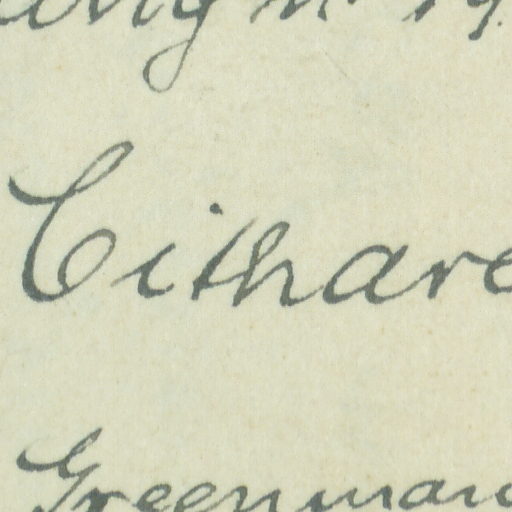 Cithare
Greenman